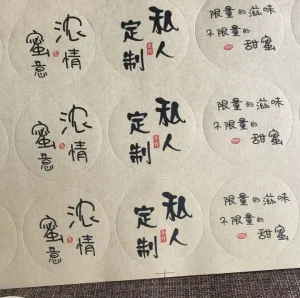 浓情
蜜意
私人
定制
限量的滋味
不限量的
甜蜜
浓情
蜜意
私人
定制
限量的滋味
不限量的
甜蜜
浓情
蜜意
私人
定制
限量的滋味
不限量的
甜蜜